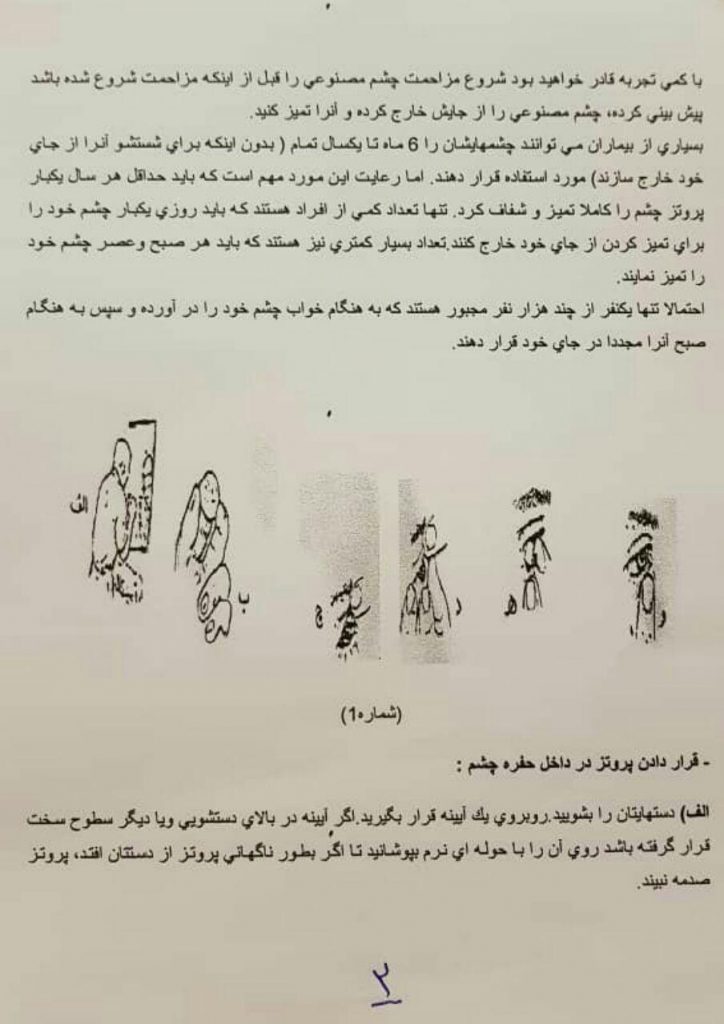 با كمي تجربه قادر خواهيد بود شروع مزاحمت چشم مصنوعي را قبل از اينكه مزاحمت شروع شده باشد
پيش بيني كرده، چشم مصنوعي را از جايش خارج كرده و آنرا تميز كنيد.
بسياري از بيماران مي توانند چشمهايشان را 6 ماه تا يكسال تمام ( بدون اينكه براي شستشو آنرا از جاي
خود خارج سازند) مورد استفاده قرار دهند. اما رعايت اين مورد مهم است كه بايد حداقل هر سال يكبار
پروتز چشم را كاملا تميز و شفاف كرد. تنها تعداد كمي از افراد هستند كه بايد روزي يكبار چشم خود را
براي تميز كردن از جاي خود خارج كنند.تعداد بسيار كمتري نيز هستند كه بايد هر صبح وعصر چشم خود
را تميز نمايند.
احتمالا تنها يكنفر از چند هزار نفر مجبور هستند كه به هنگام خواب چشم خود را در آورده و سپس به هنگام
صبح آنرا مجددا در جاي خود قرار دهند.
الف
ب
ج
د
ه
و
(شماره1)
- قرار دادن پروتز در داخل حفره چشم :
الف) دستهايتان را بشوييد.روبروي يك آيينه قرار بگيريد.اگر آيينه در بالاي دستشويي ويا ديگر سطوح سخت
قرار گرفته باشد روي آن را با حوله اي نرم بپوشانيد تا اگر بطور ناگهاني پروتز از دستتان افتد، پروتز
صدمه نبيند.
۲